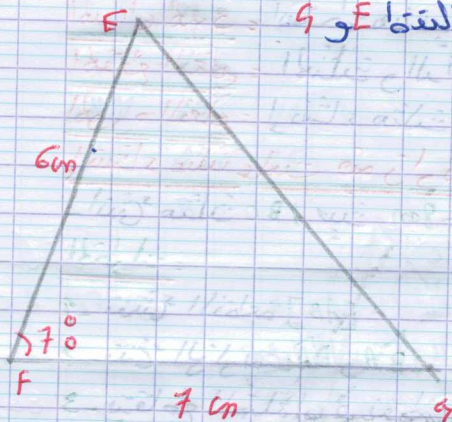 النقط E و G
E
6cm
70°
F
7 cm
G